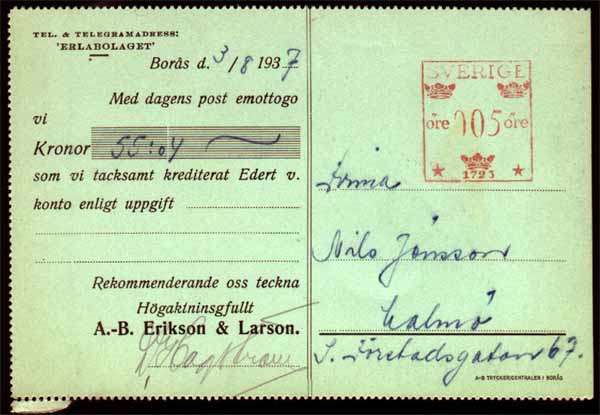 TEL. & TELEGRAMADRESS:
'ERLABOLAGET'
Borås d. 3/8 1937
Med dagens post emottogo
vi
Kronor 55:04
som vi tacksamt krediterat Edert v.
konto enligt uppgift
Rekommenderande oss teckna
Högaktningsfullt
A.-B. Erikson & Larson.
SVERIGE
öre 005 öre
1723
Firma
Nils Jönsson
Malmö
S. Förstadsgatan 67.
A-B TRYCKERICENTRALEN I BORÅS